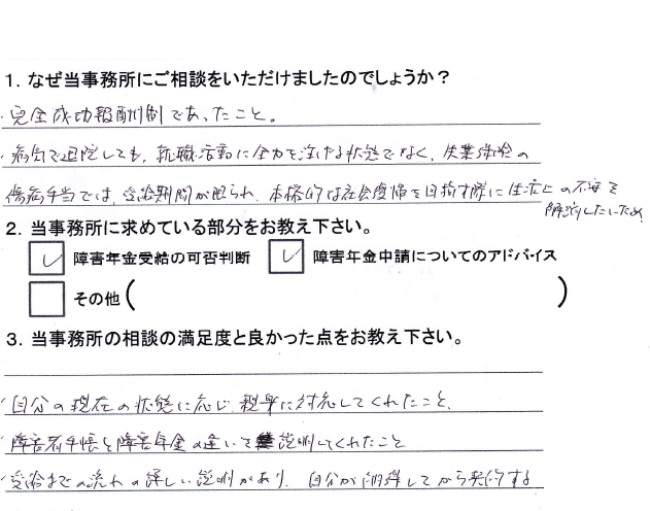 1. なぜ当事務所にご相談をいただけましたのでしょうか?
・完全成功報酬制であったこと。
・病気で退院しても、就職活動に全力を注げる状態でなく、失業保険の
傷病手当では、受給期間が限られ、本格的な社会復帰を目指す際に生活上の不安を
解消したいため
2. 当事務所に求めている部分をお教え下さい。
✓ 障害年金受給の可否判断 ✓ 障害年金申請についてのアドバイス
その他( )
3. 当事務所の相談の満足度と良かった点をお教え下さい。
・自分の現在の状態に応じ、親身に対応してくれたこと、
・障害者手帳と障害年金の違いて説明してくれたこと
・受給までの流れの詳しい説明があり、自分が納得してから契約する